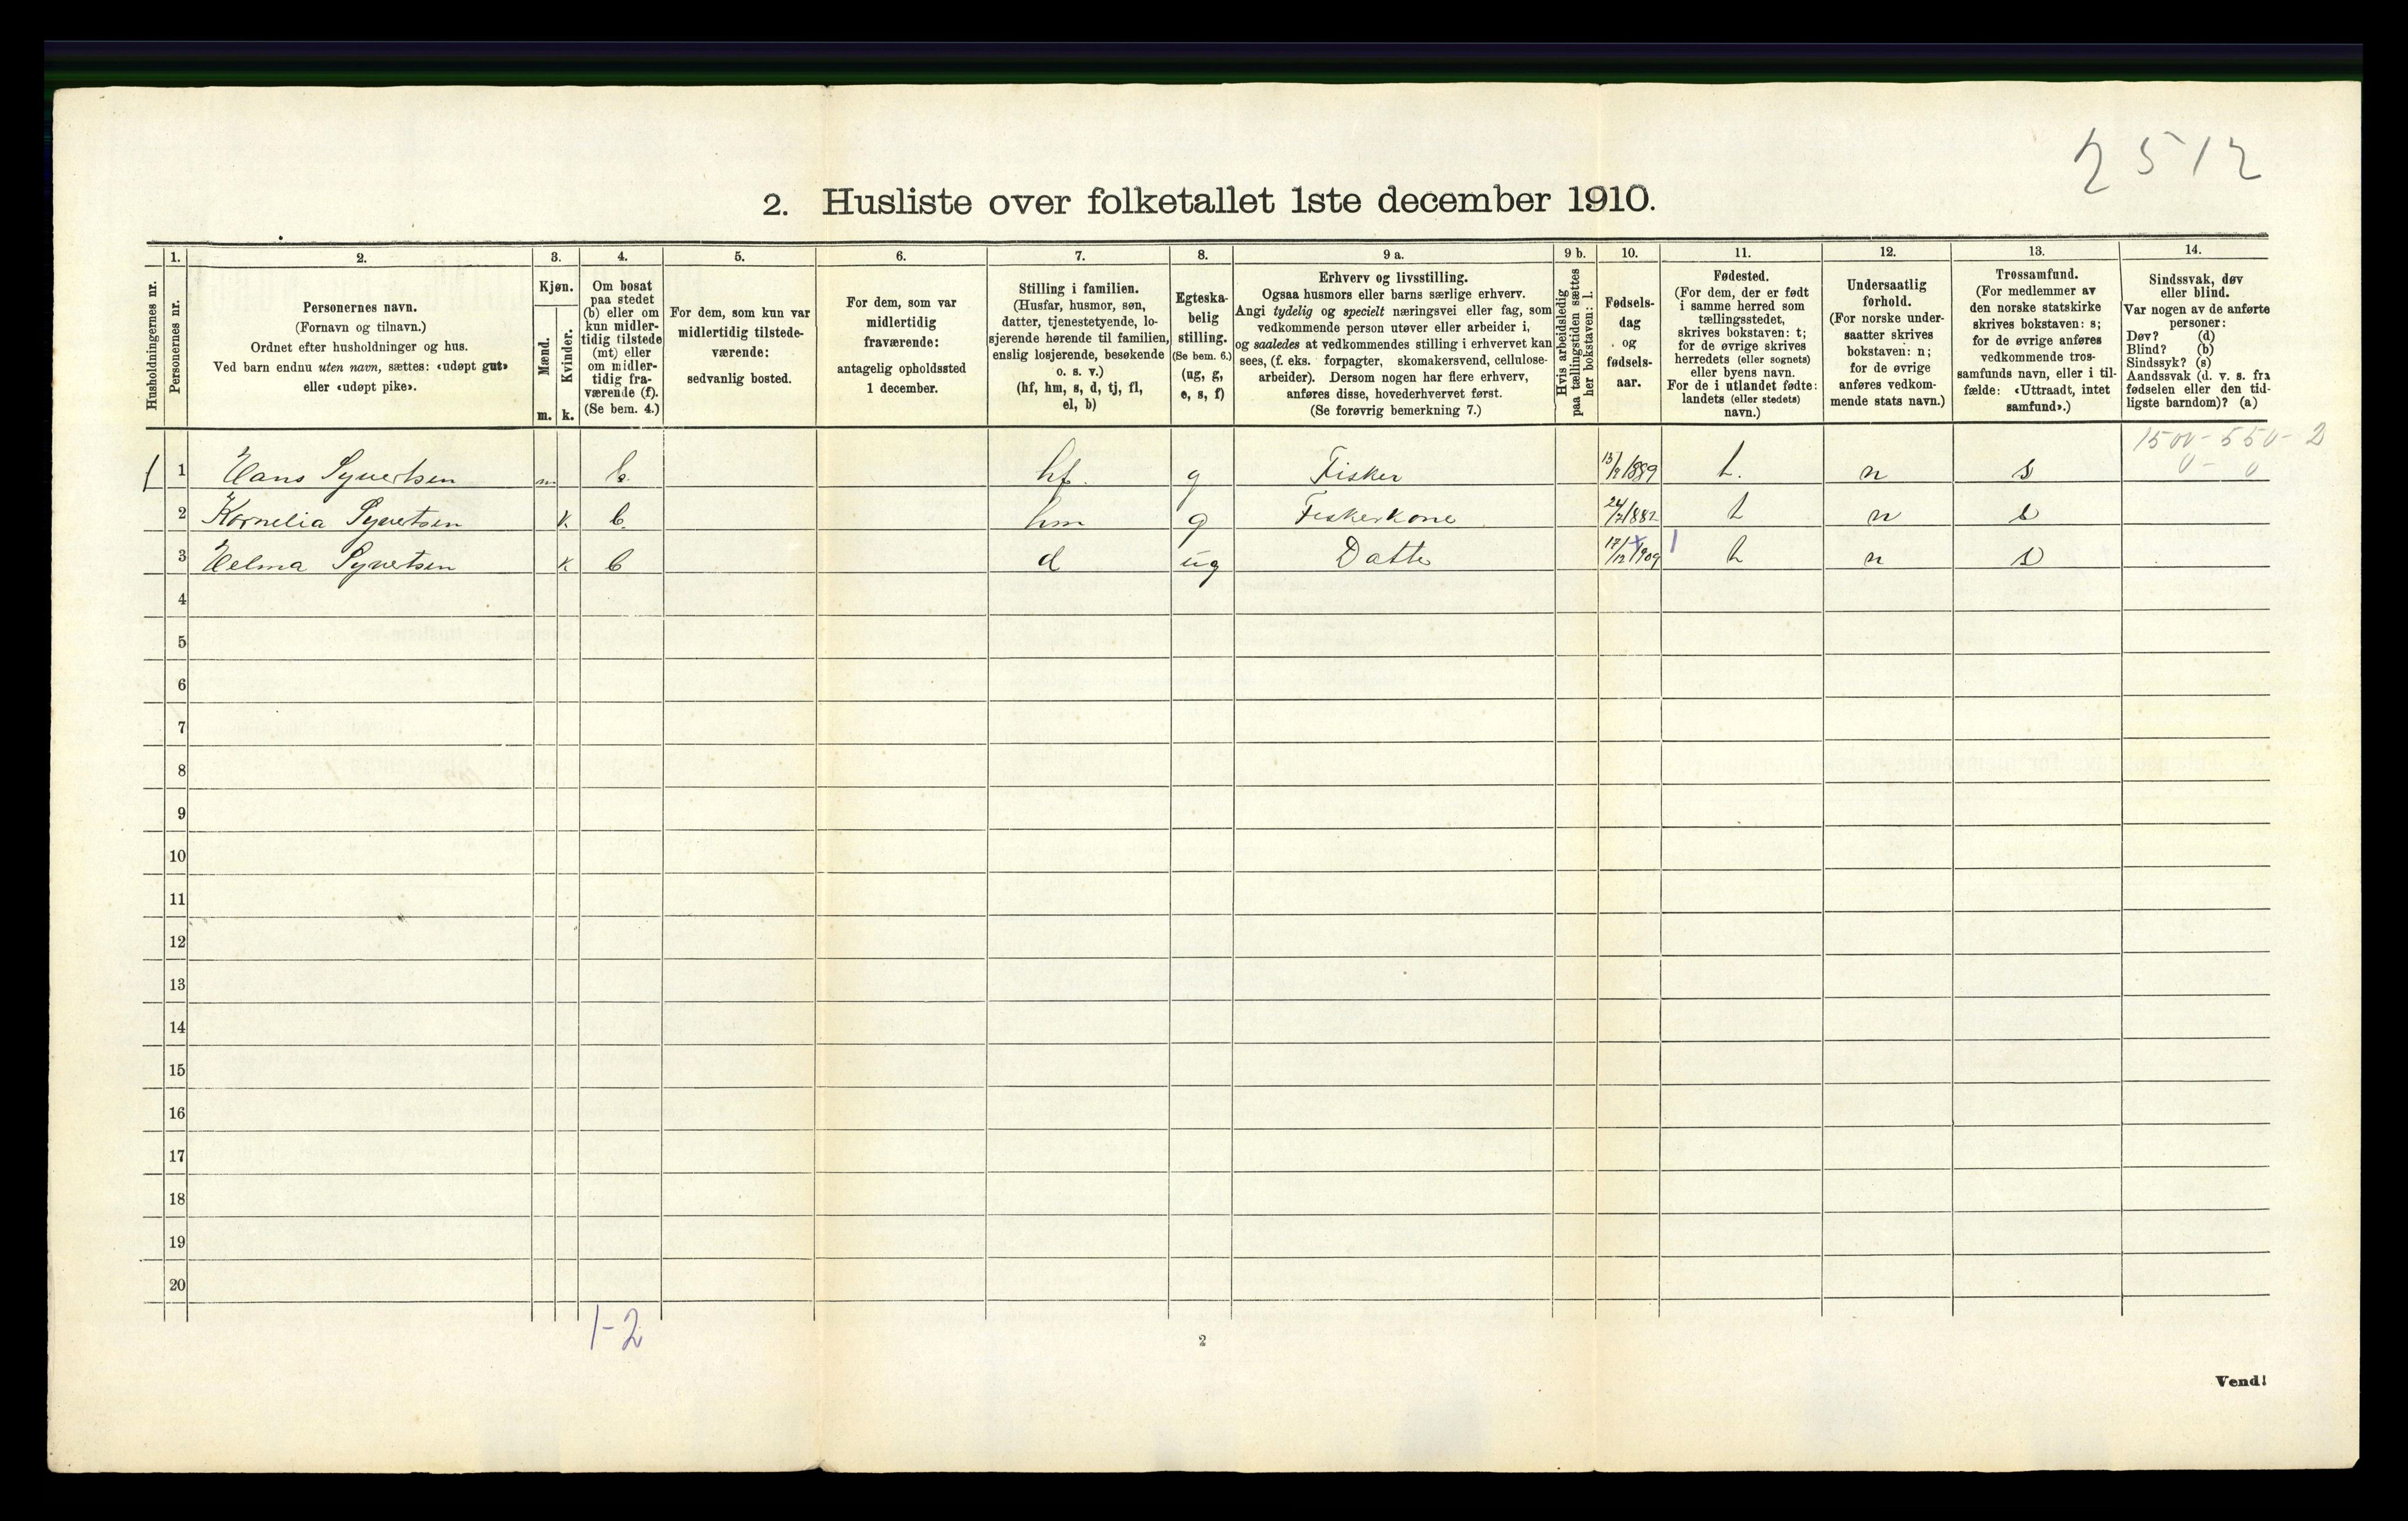 2512
2. Husliste over folketallet 1ste december 1910.
Husholdningernes nr.
1.
Personernes nr.
2.
Personernes navn.
(Fornavn og tilnavn.)
Ordnet efter husholdninger og hus.
Ved barn endnu uten navn, sættes: «udøpt gut»
eller «udøpt pike».
3.
Kjøn.
Mænd.
m.
Kvinder.
k.
4.
Om bosat
paa stedet
(b) eller om
kun midler-
tidig tilstede
(mt) eller
om midler-
tidig fra-
værende (f).
(Se bem. 4.)
5.
For dem, som kun var
midlertidig tilstede-
værende:
sedvanlig bosted.
6.
For dem, som var
midlertidig
fraværende:
antagelig opholdssted
1 december.
7.
Stilling i familien.
(Husfar, husmor, søn,
datter, tjenestetyende, lo-
sjerende hørende til familien,
enslig losjerende, besøkende
o. s. v.)
(hf, hm, s, d, tj, fl,
el, b)
8.
Egteska-
belig
stilling.
(Se bem. 6.)
(ug, g,
e, s, f)
9 a.
Erhverv og livsstilling.
Ogsaa husmors eller barns særlige erhverv.
Angi tydelig og specielt næringsvei eller fag, som
vedkommende person utøver eller arbeider i,
og saaledes at vedkommendes stilling i erhvervet kan
sees, (f. eks. forpagter, skomakersvend, cellulose-
arbeider). Dersom nogen har flere erhverv,
anføres disse, hovederhvervet først.
(Se forøvrig bemerkning 7.)
9 b.
Hvis arbeidsledig
paa tællingstiden sættes
her bokstaven: l.
10.
Fødsels-
dag
og
fødsels-
aar.
11.
Fødested.
(For dem, der er født
i samme herred som
tællingsstedet,
skrives bokstaven: t;
for de øvrige skrives
herredets (eller sognets)
eller byens navn.
For de i utlandet fødte:
landets (eller stedets)
navn.)
12.
Undersaatlig
forhold.
(For norske under-
saatter skrives
bokstaven: n;
for de øvrige
anføres vedkom-
mende stats navn.)
13.
Trossamfund.
(For medlemmer av
den norske statskirke
skrives bokstaven: s;
for de øvrige anføres
vedkommende tros-
samfunds navn, eller i til-
fælde: «Uttraadt, intet
samfund».)
14.
Sindssvak, døv
eller blind.
Var nogen av de anførte
personer:
Døv? (d)
Blind? (b)
Sindssyk? (s)
Aandssvak (d. v. s. fra
fødselen eller den tid-
ligste barndom)? (a)
1500 - 550 - 2
0 - 0
1 Hans Syvertsen m b. hf. g Fisker t. n s
2 Kornelia Syvertsen k b. hm g Fiskerkone 24/7 1882 t n s
3 Helma Syvertsen k b d ug Datter 17/12 1909 t n s
4
5
6
7
8
9
10
11
12
13
14
15
16
17
18
19
20
1-2
2
Vend!